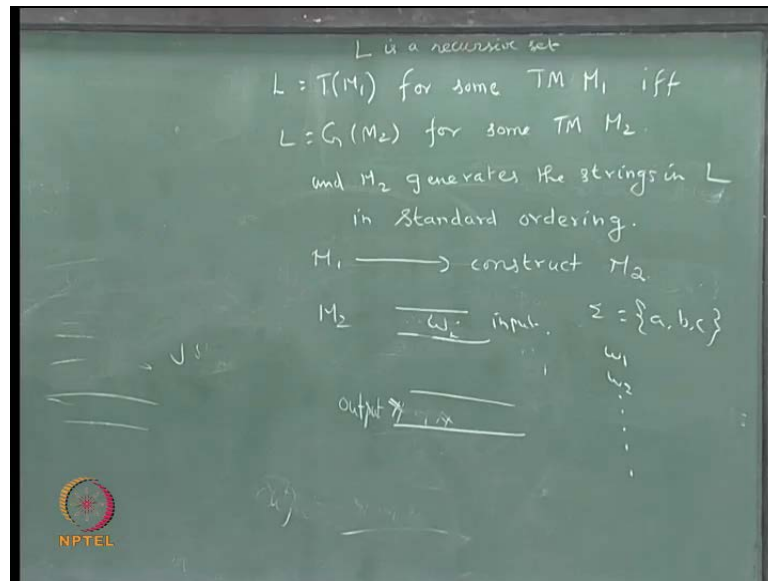 L is a recursive set
L = T(M₁) for some TM M₁ iff
L = G(M₂) for some TM M₂.
and M₂ generates the strings in L
in standard ordering.
M₁ ⟶ construct M₂
M₂ wᵢ input. Σ = {a, b, c}
w₁
w₂
output
NPTEL